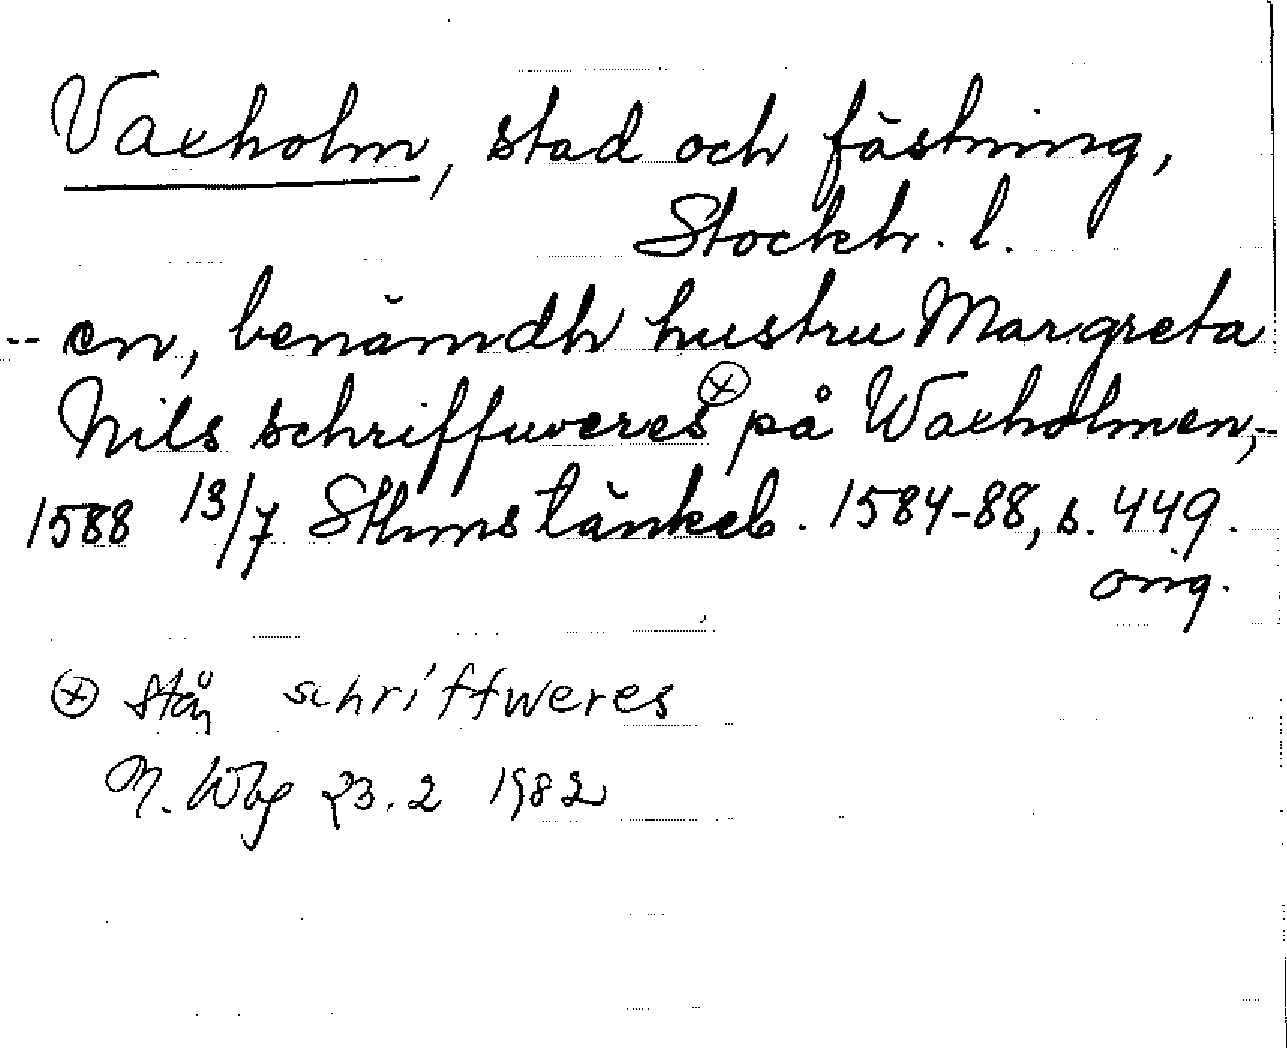 Vaxholm, stad och fästning,
Stockh. l.
-- en, benämdh hustru Margreta
Nils schriffuveres ⊗ på Waxholmen,--
1588 13/7 Sthms tänkeb. 1584-88, s. 449.
orig.
⊗ står schriffweres
N. Wbg 23.2 1982